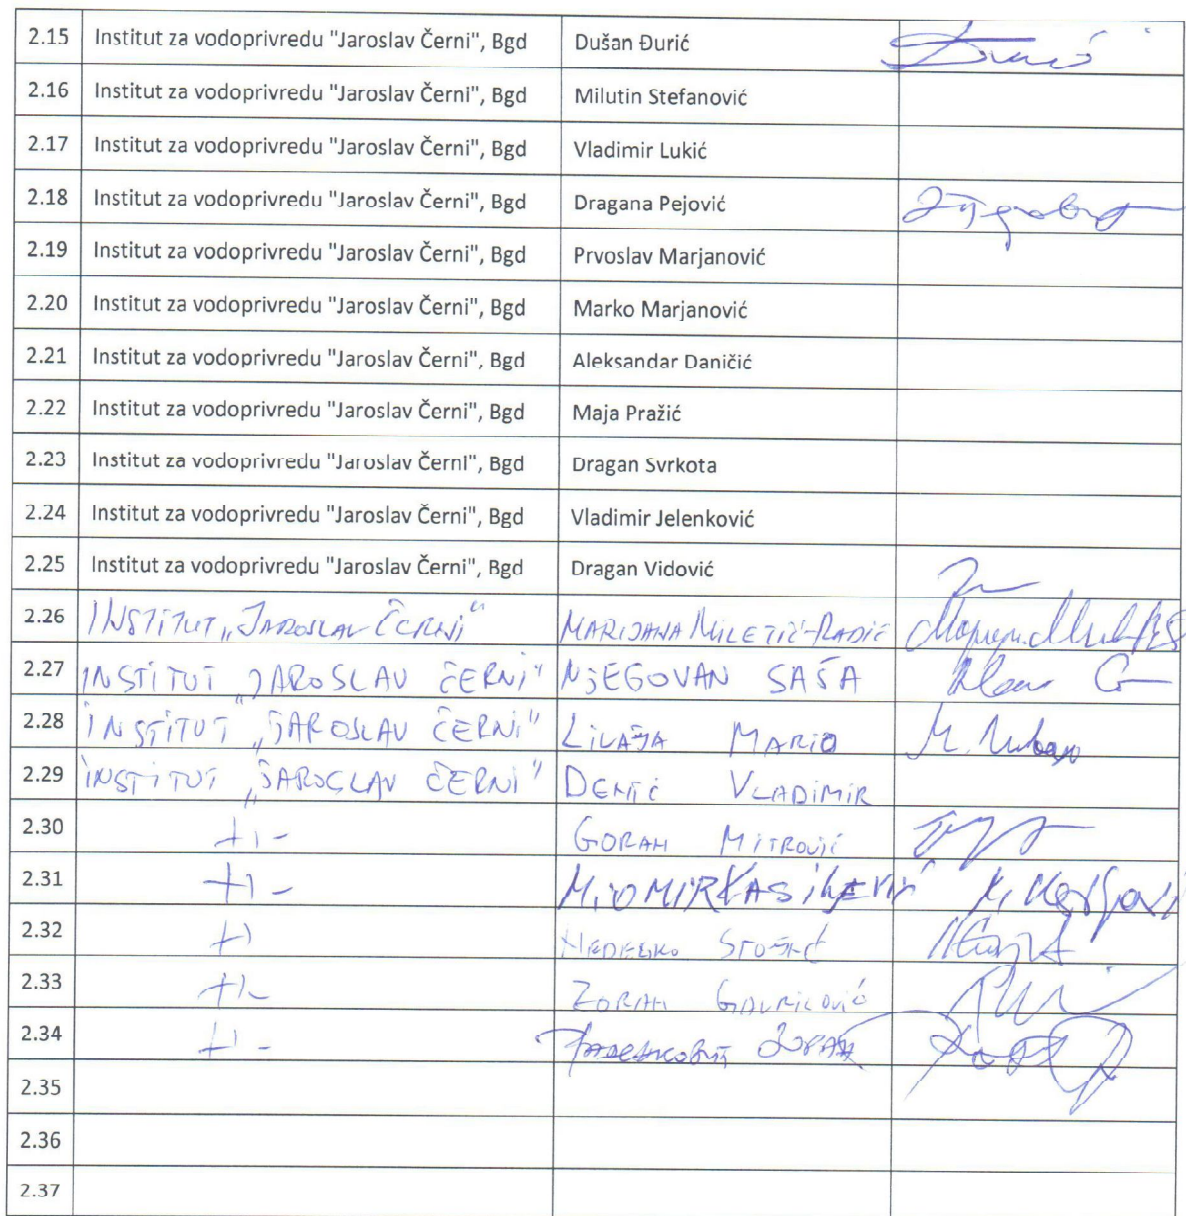 2.15 Institut za vodoprivredu "Jaroslav Černi", Bgd Dušan Đurić
2.16 Institut za vodoprivredu "Jaroslav Černi", Bgd Milutin Stefanović
2.17 Institut za vodoprivredu "Jaroslav Černi", Bgd Vladimir Lukić
2.18 Institut za vodoprivredu "Jaroslav Černi", Bgd Dragana Pejović
2.19 Institut za vodoprivredu "Jaroslav Černi", Bgd Prvoslav Marjanović
2.20 Institut za vodoprivredu "Jaroslav Černi", Bgd Marko Marjanović
2.21 Institut za vodoprivredu "Jaroslav Černi", Bgd Aleksandar Daničić
2.22 Institut za vodoprivredu "Jaroslav Černi", Bgd Maja Pražić
2.23 Institut za vodoprivredu "Jaroslav Černi", Bgd Dragan Svrkota
2.24 Institut za vodoprivredu "Jaroslav Černi", Bgd Vladimir Jelenković
2.25 Institut za vodoprivredu "Jaroslav Černi", Bgd Dragan Vidović
2.26 INSTITUT „JAROSLAV ČERNI" MARIJANA MILETIĆ-RADIĆ
2.27 INSTITUT „JAROSLAV ČERNI" NJEGOVAN SAŠA
2.28 INSTITUT „JAROSLAV ČERNI" LIVAJA MARIO
2.29 INSTITUT „JAROSLAV ČERNI" VLADIMIR
2.30 GORAN MITROVIĆ
2.31 MIOMIR VASILJEVIĆ
2.32 NEDELJKO
2.33 ZORAN GAVRILOVIĆ
2.34
2.35
2.36
2.37